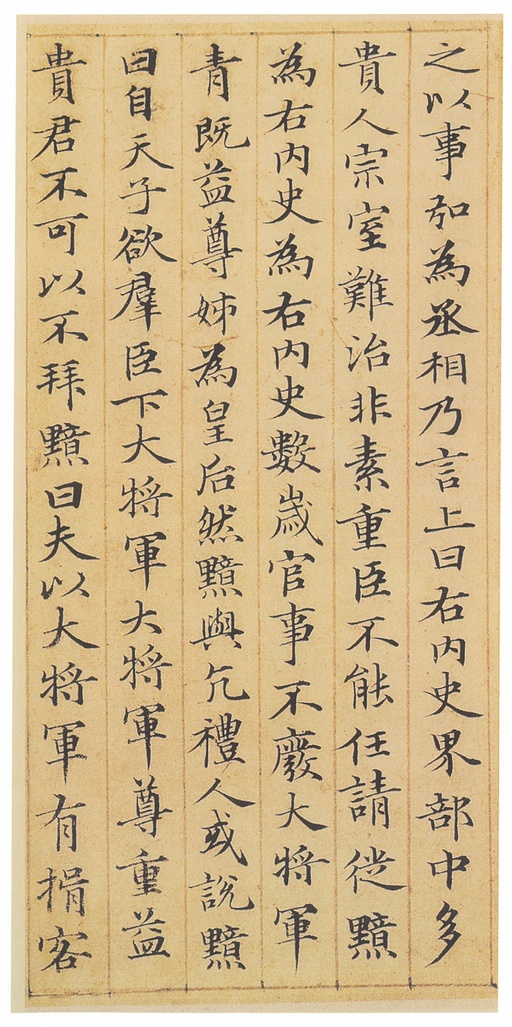 之以事弘為丞相乃言上曰右內史界部中多
貴人宗室難治非素重臣不能任請徙黯
為右內史為右內史數歲官事不廢大將軍
青既益尊姊為皇后然黯與亢禮人或說黯
曰自天子欲群臣下大將軍大將軍尊重益
貴君不可以不拜黯曰夫以大將軍有揖客